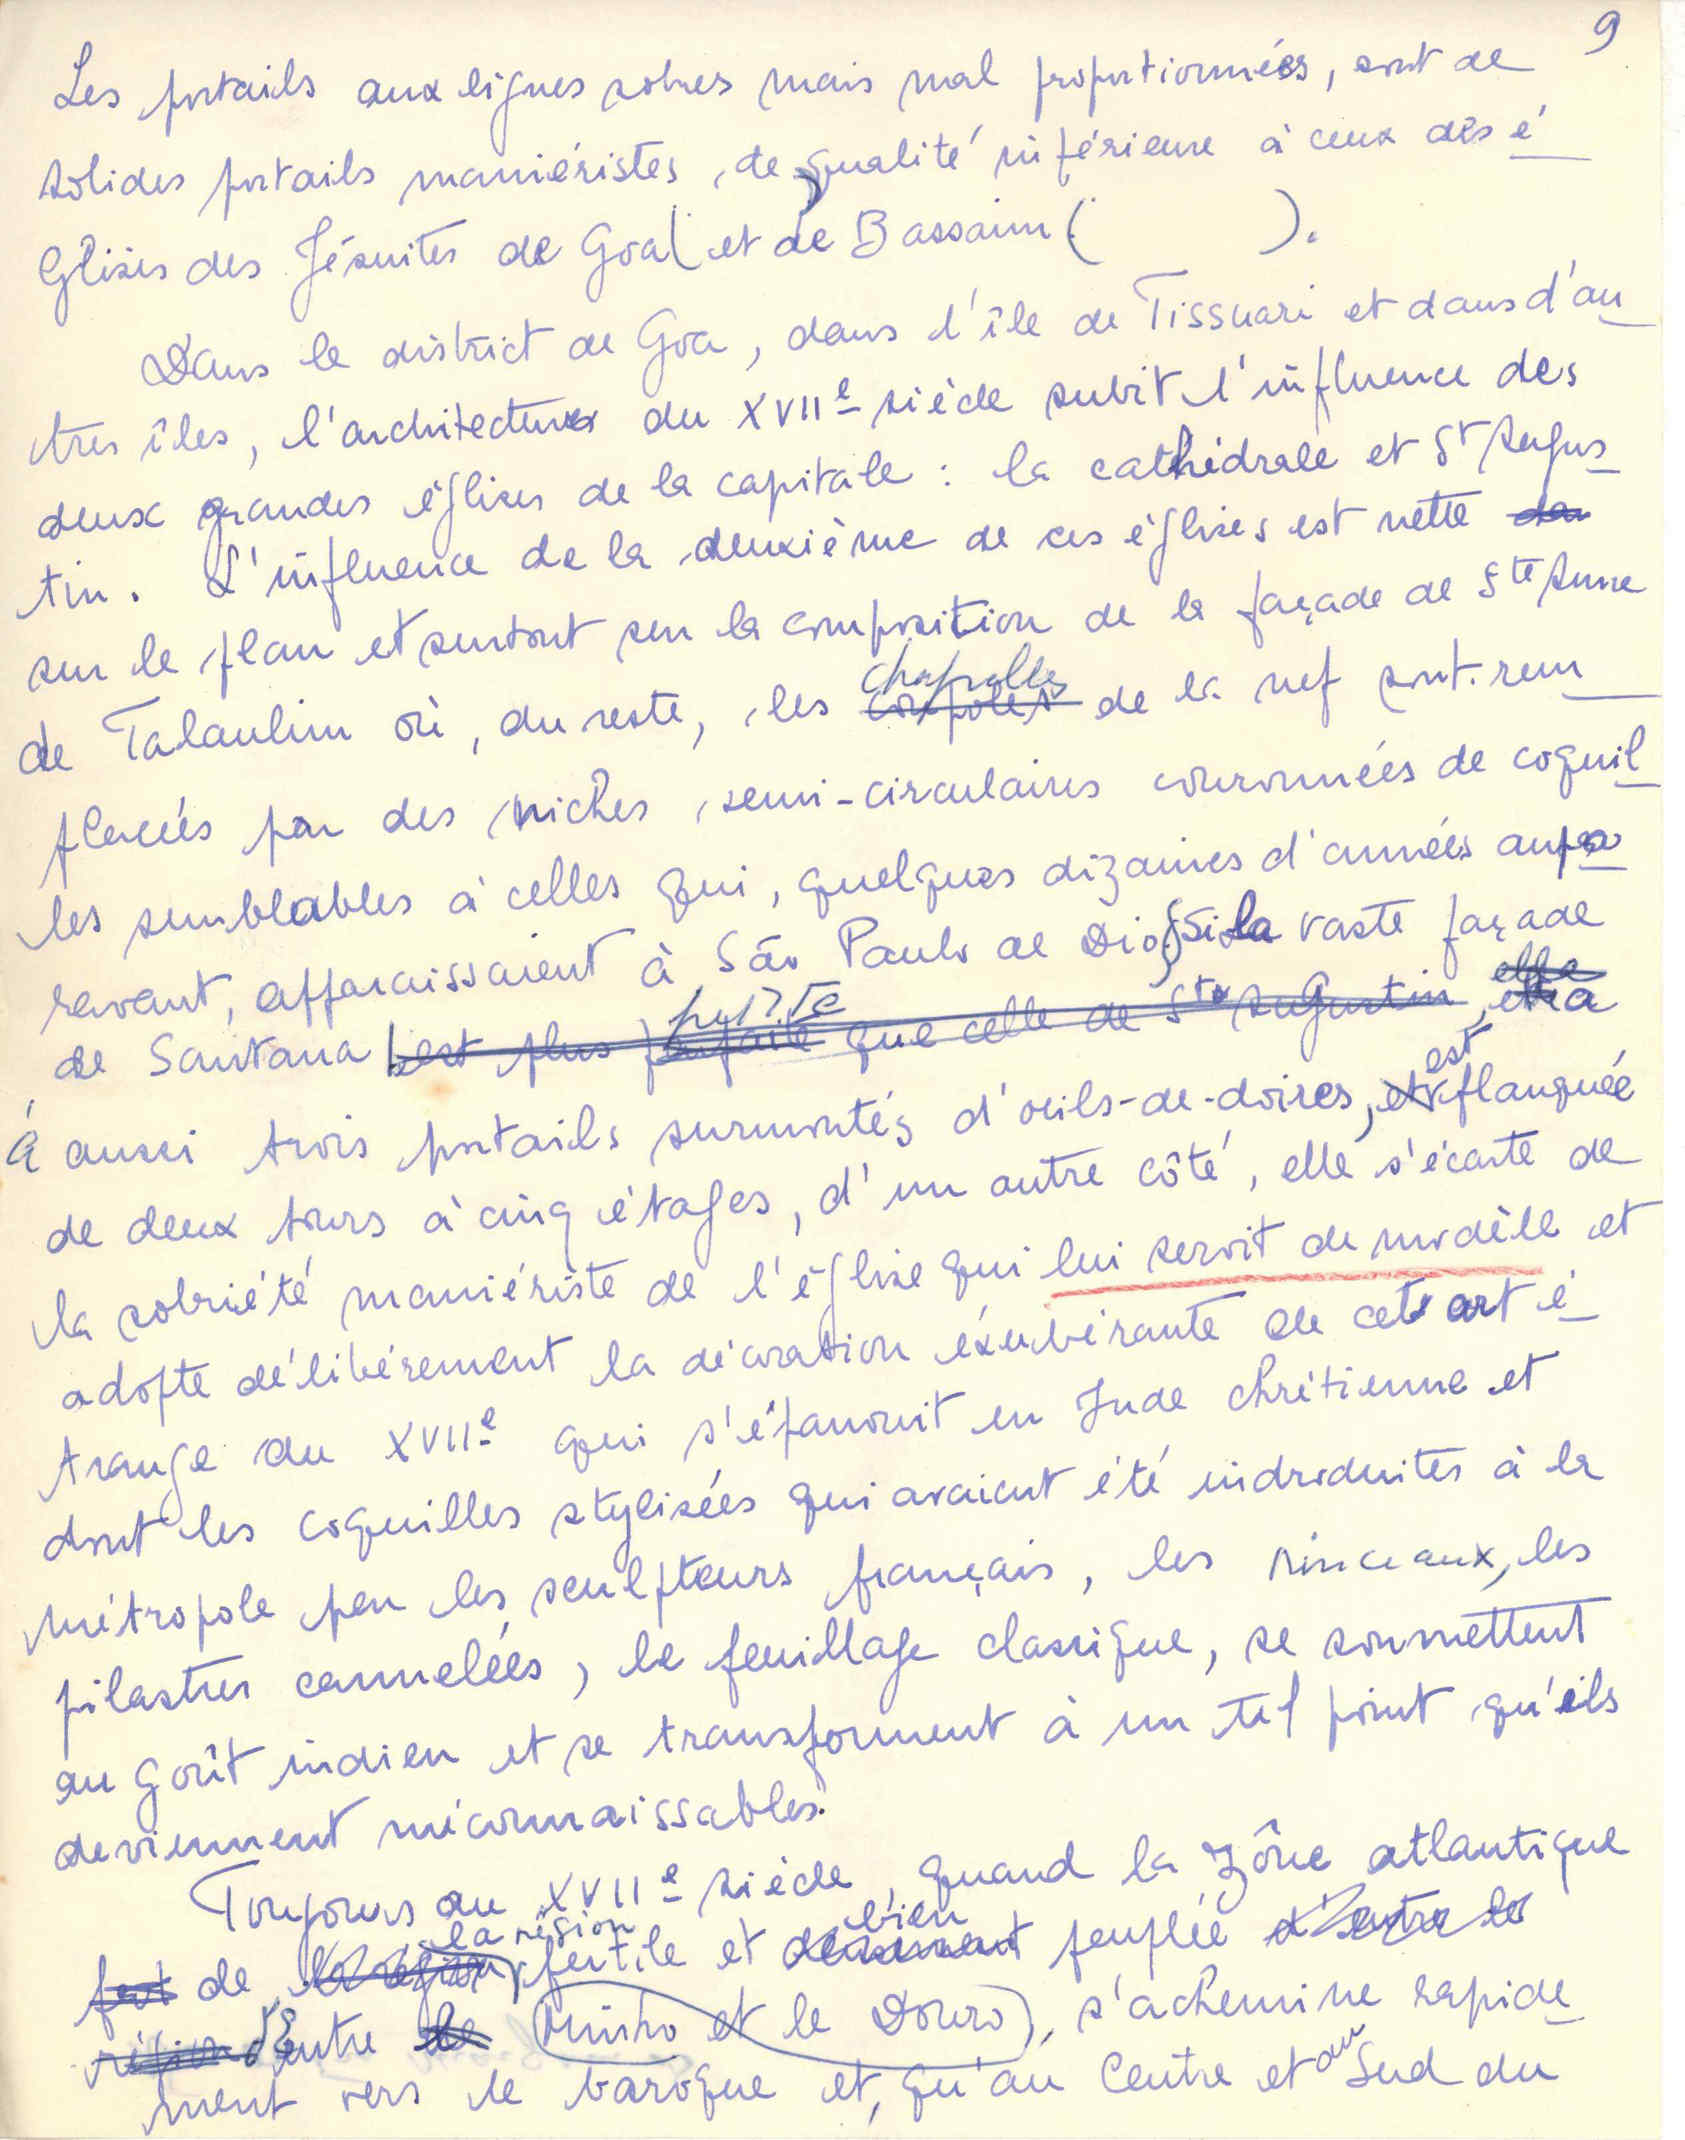 9
Les portails aux lignes sobres mais mal proportionnées, sont de
solides portails maniéristes, de qualité inférieure à ceux des é
glises des Jésuites de Goa ( et de Bassaim ( ).
Dans le district de Goa, dans l'île de Tissuari et dans d'au
tres îles, l'architecture du XVIIe siècle subit l'influence des
deux grandes églises de la capitale : la cathédrale et St Augus
tin. L'influence de la deuxième de ces églises est nette
sur le plan et surtout sur la composition de la façade de Ste Anne
de Talaulim où, du reste, les chapelles de la nef sont rem
placées par des niches semi-circulaires couronnées de coquil
les semblables à celles qui, quelques dizaines d'années aupa
ravant, apparaissaient à São Paulo de Dio. Si la vaste façade
de Santana est plus parfaite que celle de St Augustin, elle a
à aussi trois portails surmontés d'oeils-de-doires, est flanquée
de deux tours à cinq étages, d'un autre côté, elle s'écarte de
la sobriété maniériste de l'église qui lui servit de modèle et
adopte délibérement la décoration éxubérante de cet art é
trange du XVIIe qui s'épanouit en Inde chrétienne et
dont les coquilles stylisées qui avaient été indroduites à la
métropole par les sculpteurs français, les rinceaux, les
pilastres cannelées, le feuillage classique, se soumettent
au goût indien et se transforment à un tel point qu'ils
deviennent méconnaissables.
Toujours au XVIIe siècle, quand la zône atlantique
de la région fertile et bien peuplée d'entre le
région entre le Minho et le Douro, s'achemine rapide
ment vers le baroque et, qu'au Centre et au Sud du